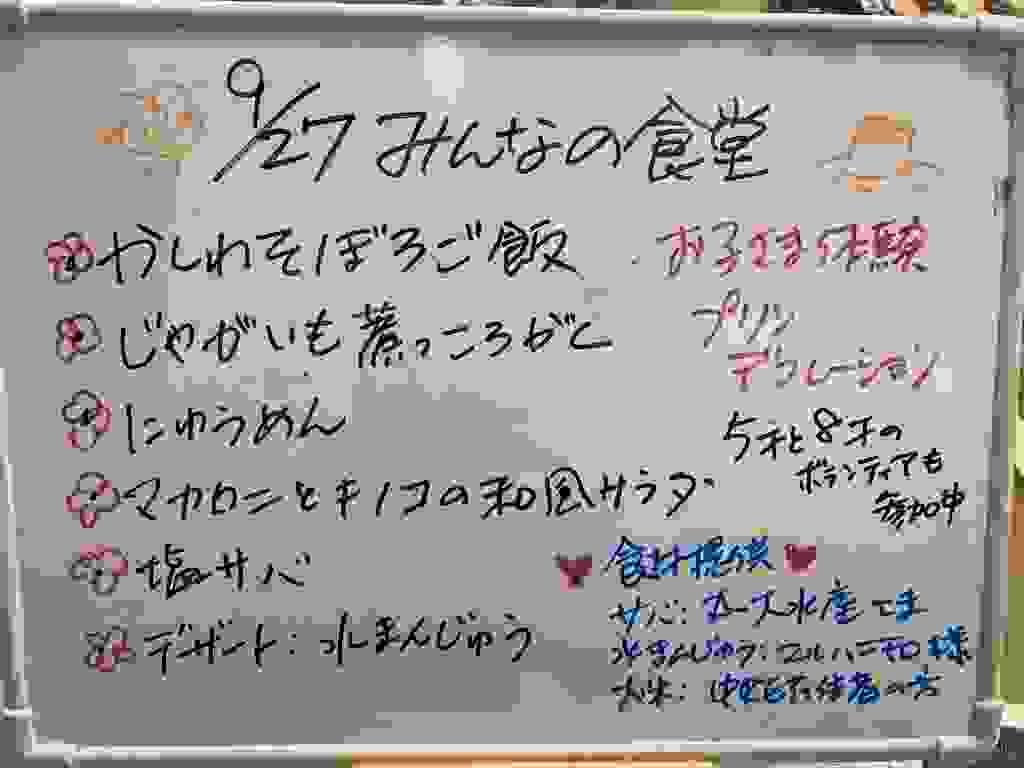 9/27 みんなの食堂
かしわそぼろご飯
じゃがいも煮っころがし
にゅうめん
マカロニとキノコの和風サラダ
塩サバ
デザート：水まんじゅう
お子さま体験
プリン
デコレーション
5才と8才の
ボランティアも
参加中
食材提供
サバ：水産
水まんじゅう：様
お米：の方